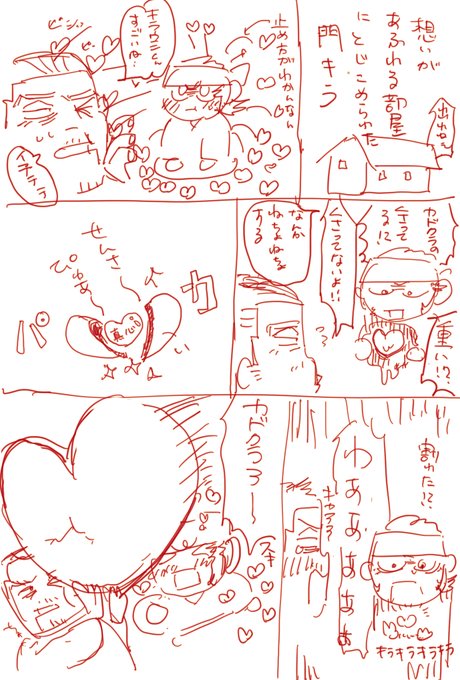 想いが
あふれる部屋
にとじこめられた
門キラ
出れねぇ
止め方がわかんなん
キラウㇱさん
すごいね…
ビシッ
ビシ
イテテテ
カドクラの
くさってる!?
くさってないよ!!
重い!?
なんか
ねちょねちょ
する
カ
パ
せんさ~
ぴゅあ~
真心
割れた!?
わああああぁ
キャアァ
キラキラキラキラ
カドクラァ~
スキ